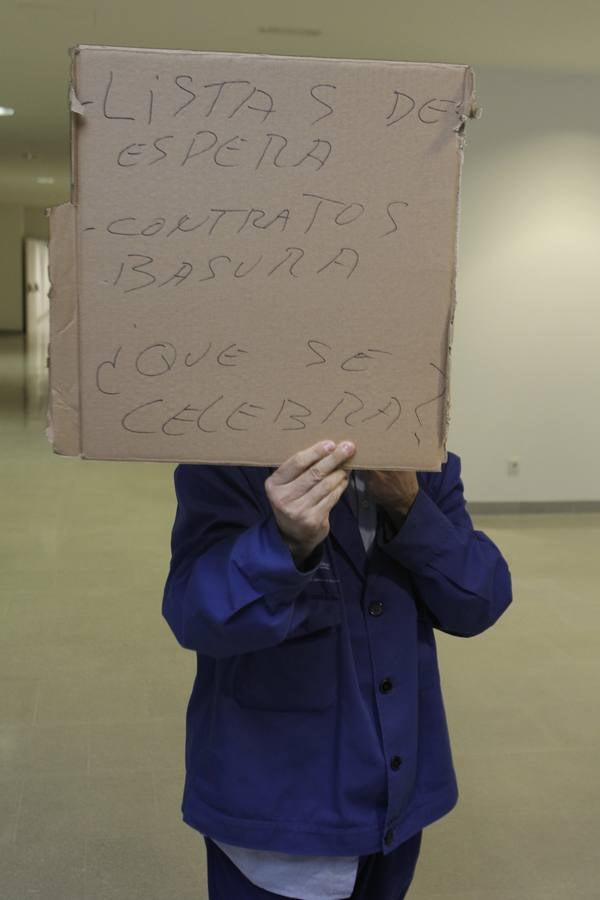 -LiSTAS DE
ESPERA
-CONTRATOS
BASURA
¿QUE SE
CELEBRA?